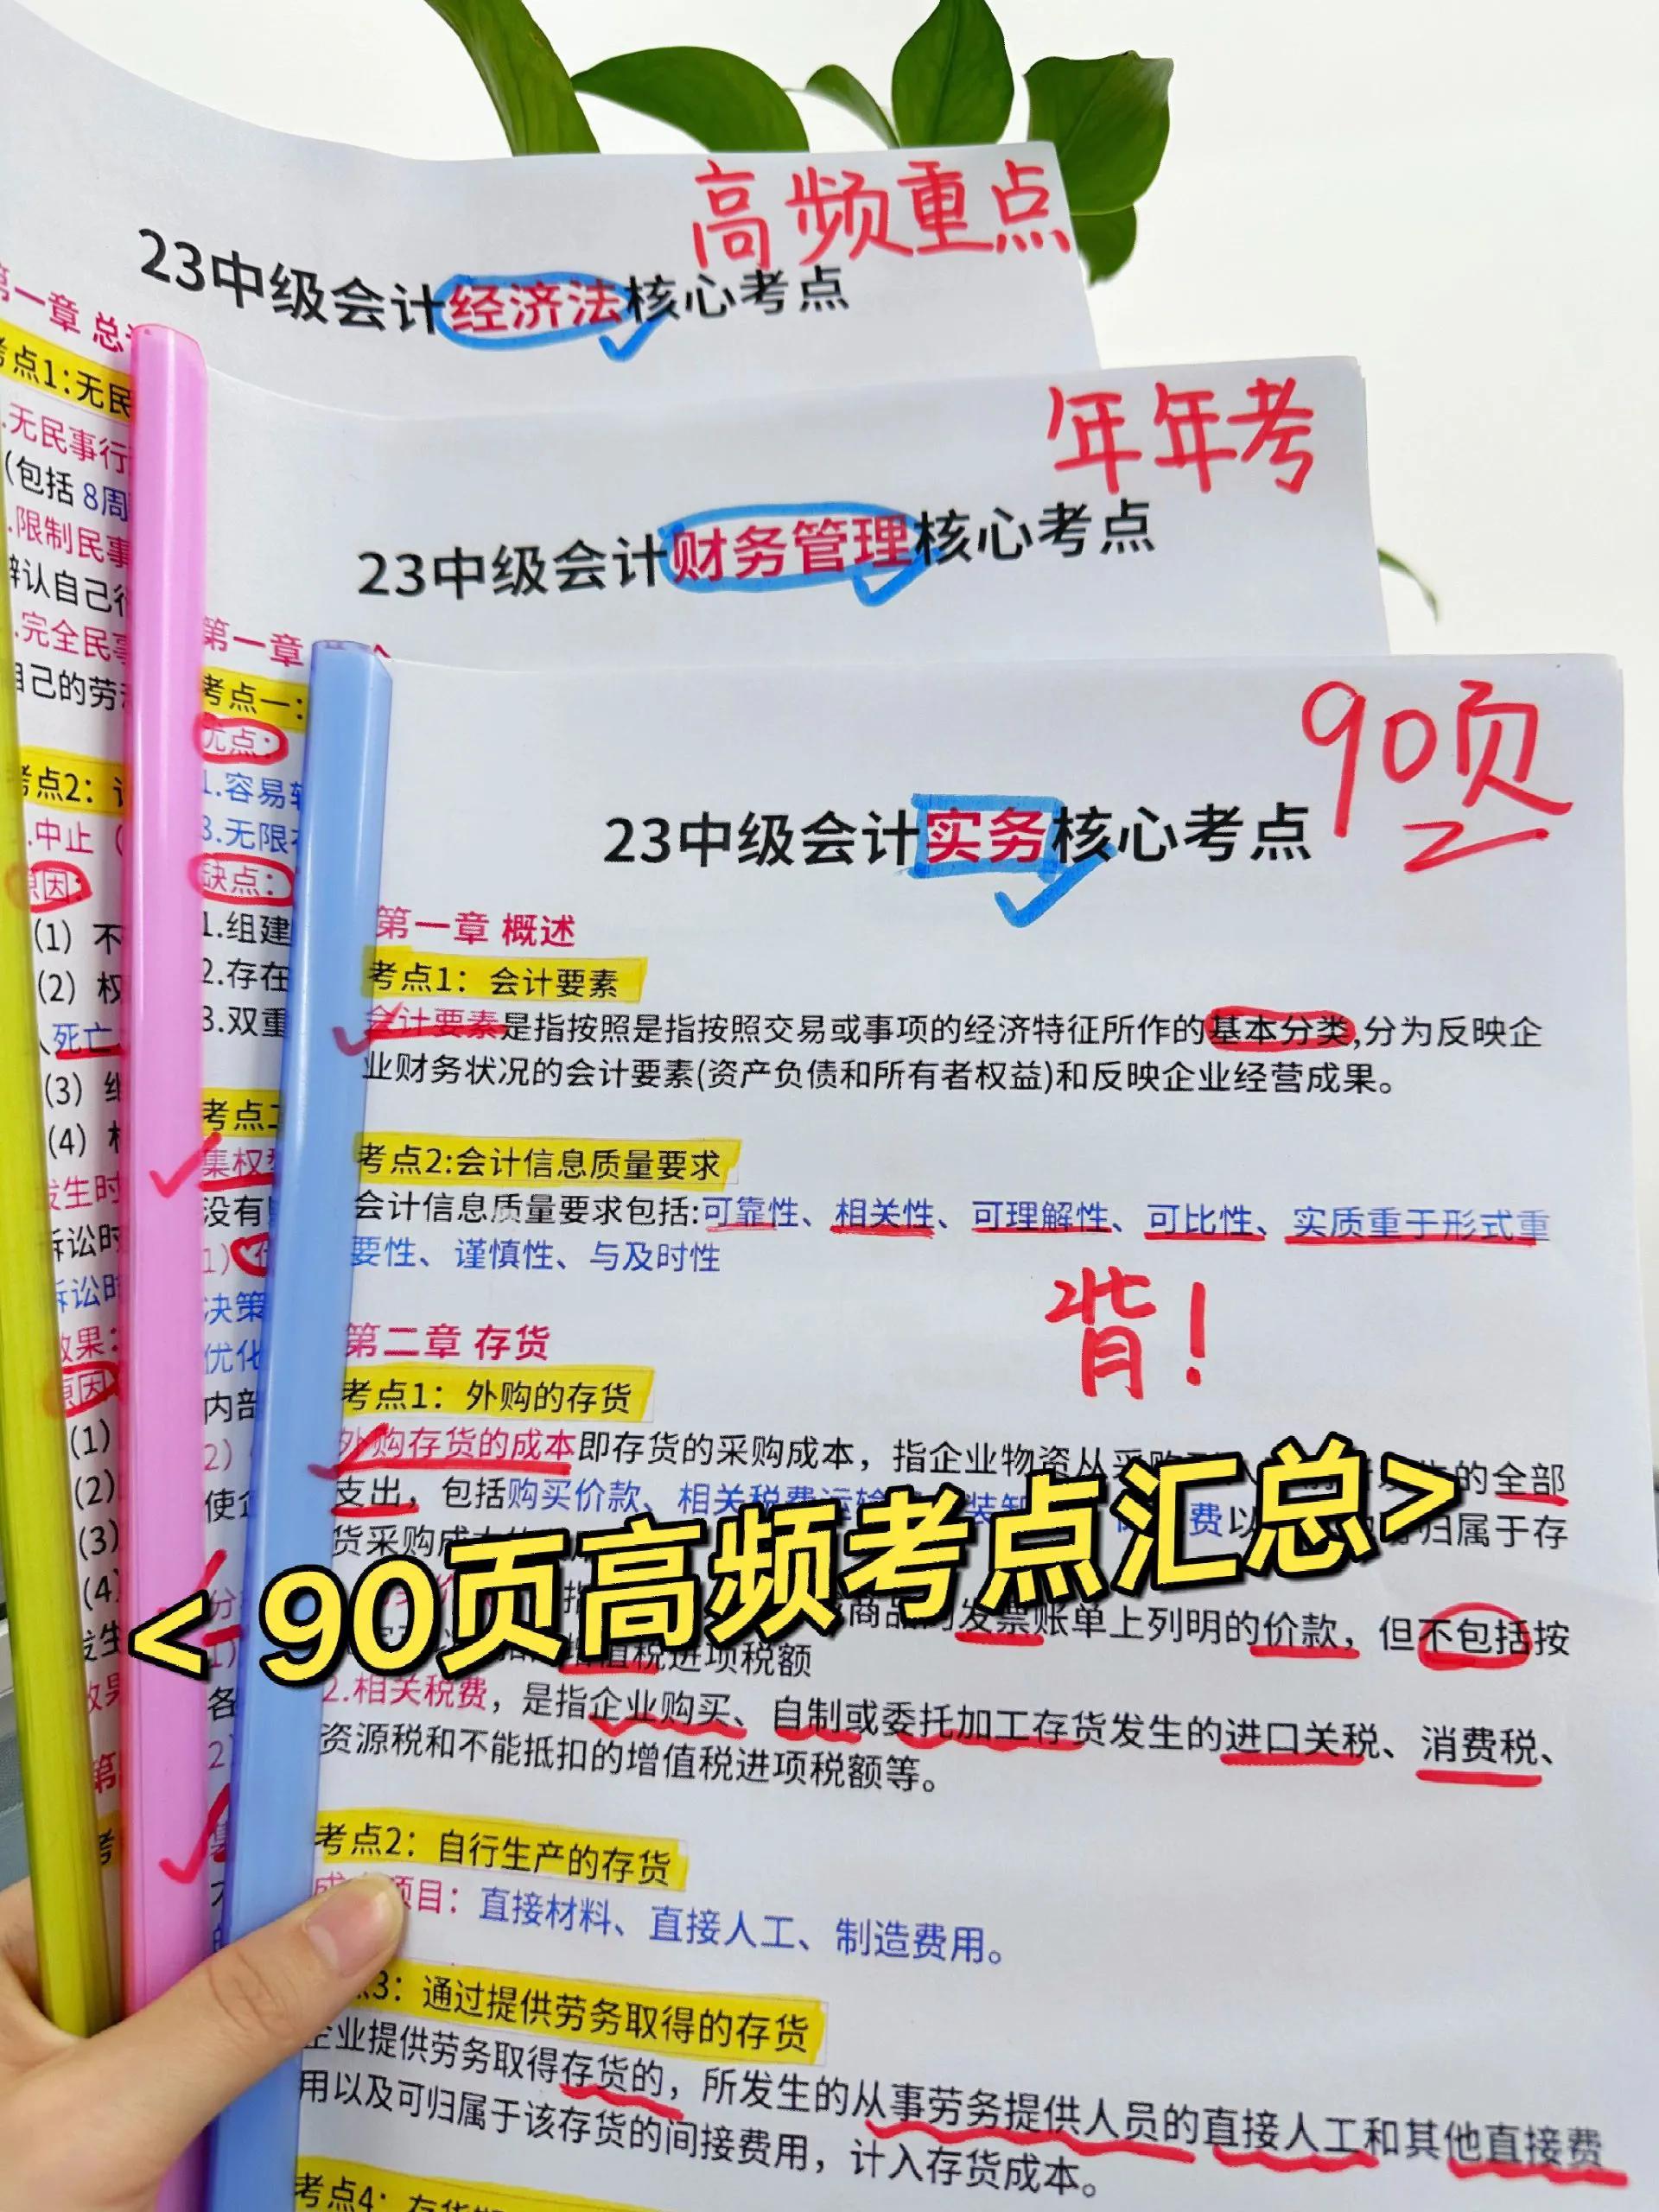 高频重点
23中级会计经济法核心考点
年年考
23中级会计财务管理核心考点
90页
23中级会计实务核心考点
第一章 总
考点1:无民
.无民事行
(包括 8周
.限制民事
辨认自己行
.完全民事
自己的劳
考点2:
.中止
原因:
(1) 不
(2) 权
死亡
(3) 继
(4)
发生时
诉讼时
诉讼时
效果:
原因
(1)
(2)
(3)
(4)
发生
效果
第一章
考点一:
优点:
1.容易转
3.无限存
缺点:
1.组建
2.存在
3.双重
考点二
集权型
没有
1)
决策
优化
内部
2)
使企
分
1)
各
2)
第一章 概述
考点1: 会计要素
会计要素是指按照是指按照交易或事项的经济特征所作的基本分类,分为反映企
业财务状况的会计要素(资产负债和所有者权益)和反映企业经营成果。
考点2:会计信息质量要求
会计信息质量要求包括:可靠性、相关性、可理解性、可比性、实质重于形式重
要性、谨慎性、与及时性
背!
第二章 存货
考点1: 外购的存货
外购存货的成本即存货的采购成本，指企业物资从采购 的全部
支出，包括购买价款、相关税费运输 费以 归属于存
货采购成本的
<90页高频考点汇总>
商品的发票账单上列明的价款，但不包括按
增值税进项税额
2.相关税费，是指企业购买、自制或委托加工存货发生的进口关税、消费税、
资源税和不能抵扣的增值税进项税额等。
考点2: 自行生产的存货
成 项目: 直接材料、直接人工、制造费用。
点3: 通过提供劳务取得的存货
企业提供劳务取得存货的，所发生的从事劳务提供人员的直接人工和其他直接费
用以及可归属于该存货的间接费用，计入存货成本。
考点4: 存货